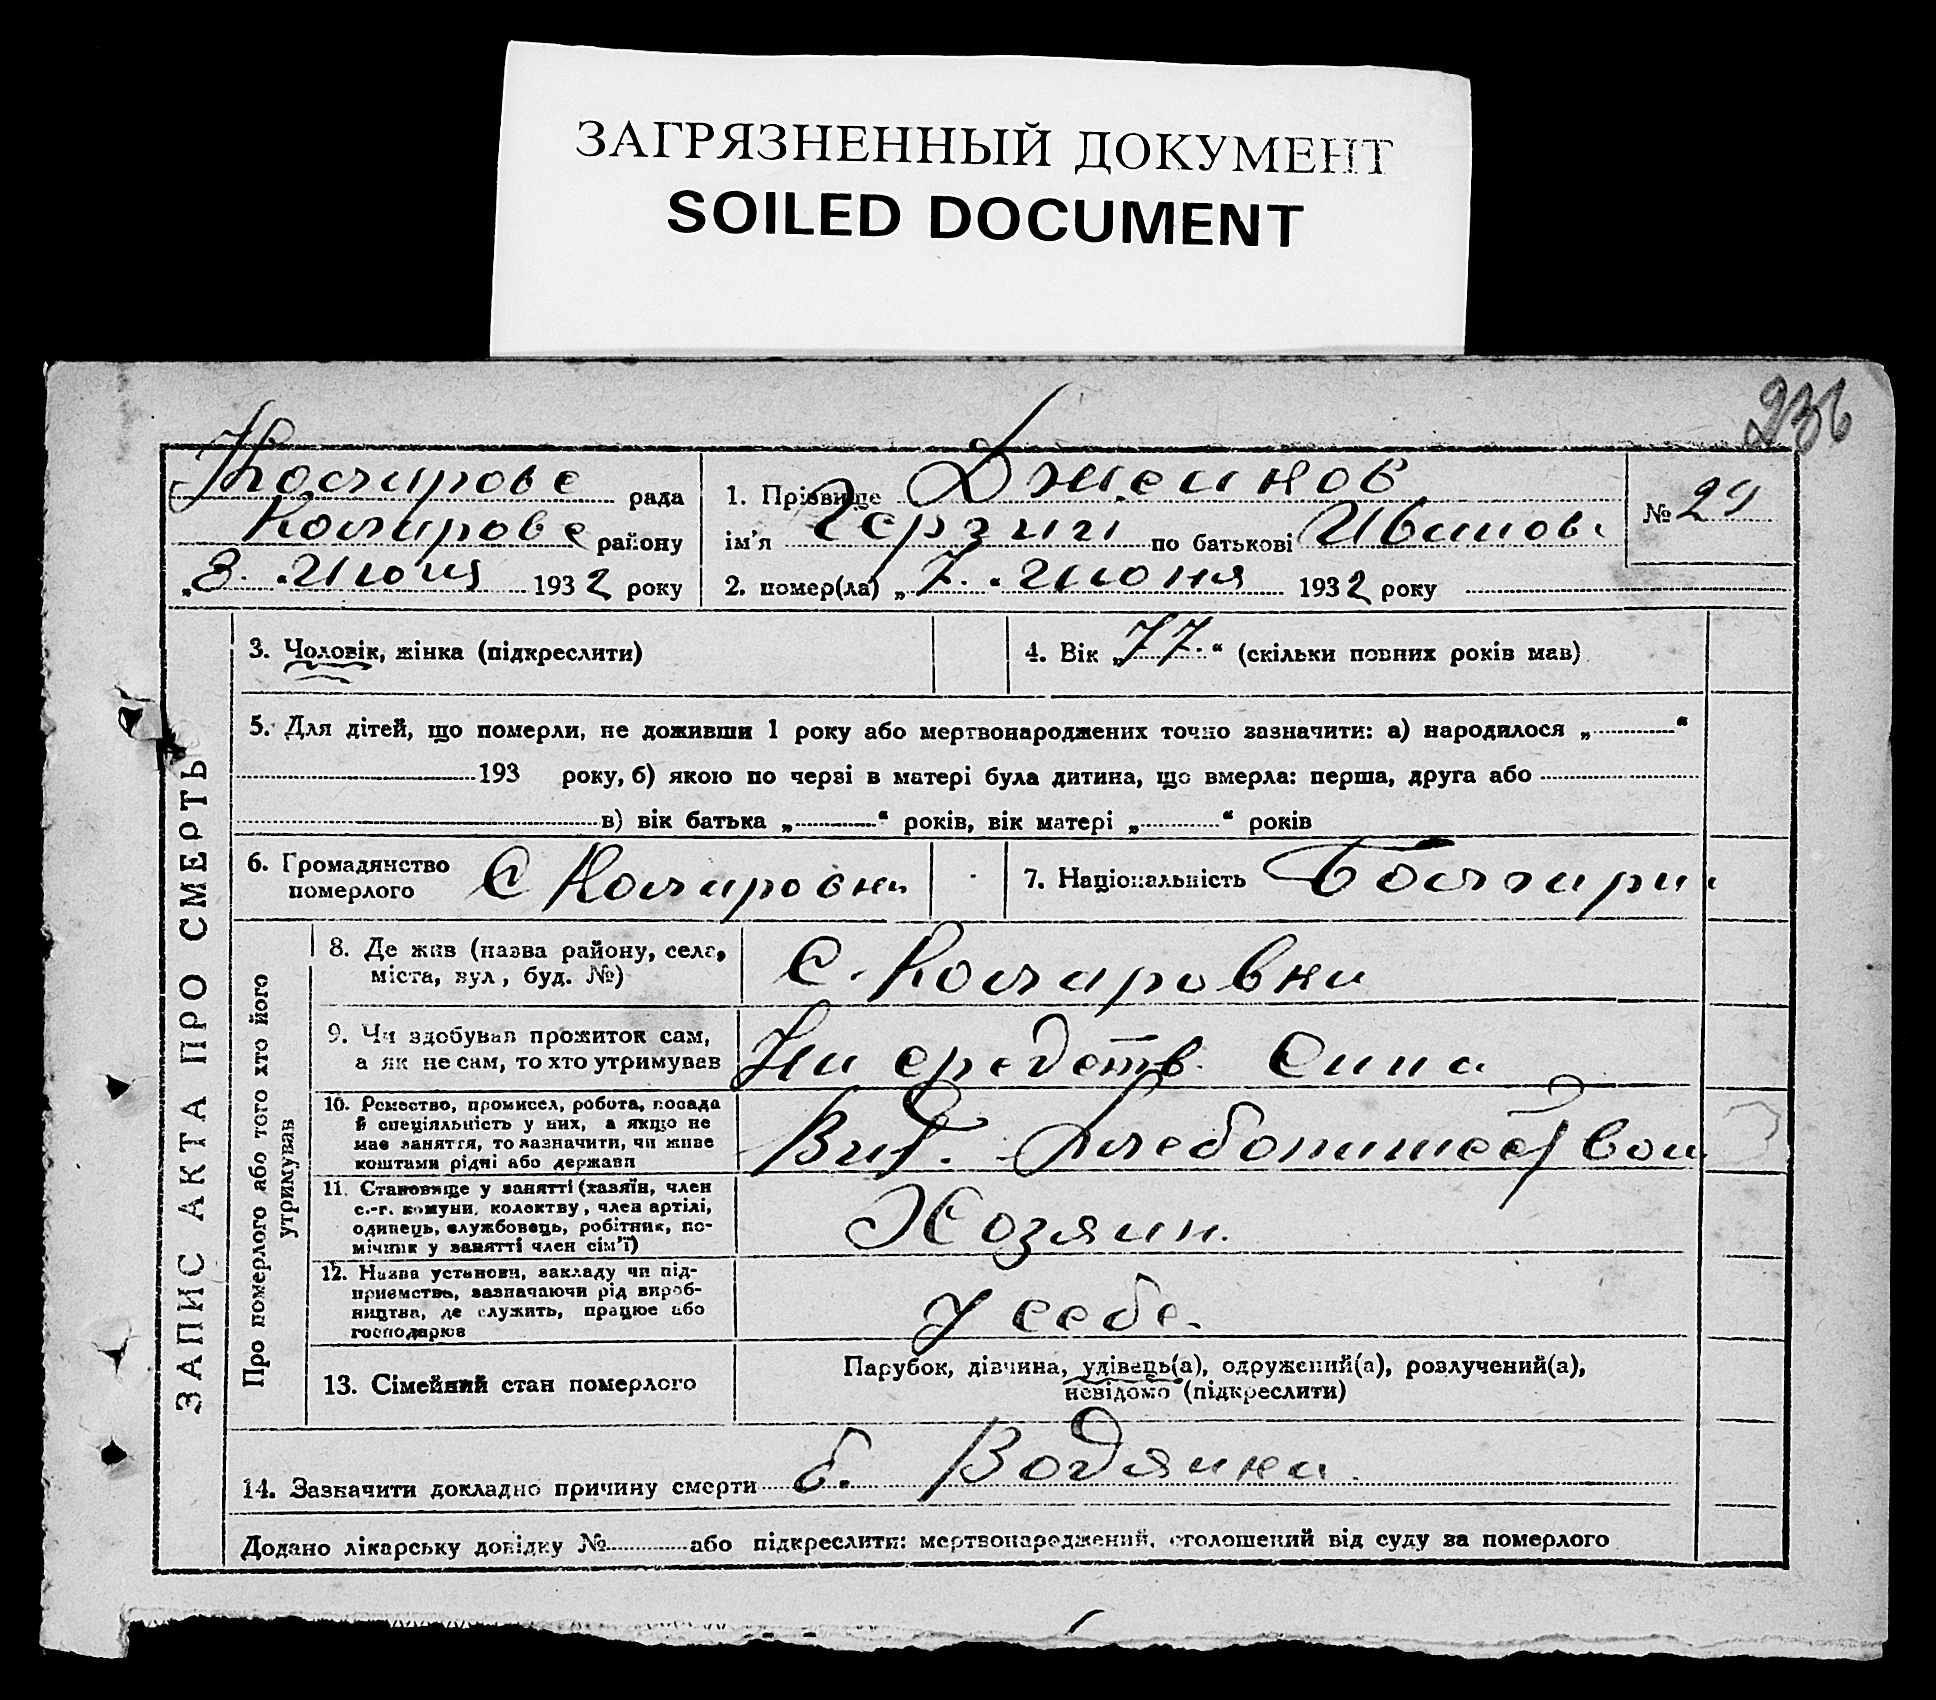 ЗАГРЯЗНЕННЫЙ ДОКУМЕНТ
SOILED DOCUMENT
236
рада
району
„3. Июня 1932 року
1. Прізвище
ім'я по батькові Иванов.
2. помер(ла) „7. Июня 1932 року
№ 29
ЗАПИС АКТА ПРО СМЕРТЬ
3. Чоловік, жінка (підкреслити)
4. Вік „77.“ (скільки повних років мав)
5. Для дітей, що померли, не доживши 1 року або мертвонароджених точно зазначити: а) народилося „ “
193 року, б) якою по черзі в матері була дитина, що вмерла: перша, друга або
в) вік батька „ “ років, вік матері „ “ років
6. Громадянство
померлого
7. Національність Болгари
Про померлого або того хто його
утримував
8. Де жив (назва району, села,
міста, вул, буд. №)
с.
9. Чи здобував прожиток сам,
а як не сам, то хто утримував
На средств. Сина
10. Ремество, промисел, робота, посада
й спеціяльність у них, а якщо не
має заняття, то зазначити, чи живе
коштами рідні або держави
Хлебопашеством
11. Становище у занятті (хазяїн, член
с.-г. комуни, колективу, член артілі,
одинець, службовець, робітник, по-
мічник у занятті член сім'ї)
Хозяин.
12. Назва установи, закладу чи під-
приємства, зазначаючи рід вироб-
ництва, де служить, працює або
господарює
у себе.
13. Сімейний стан померлого
Парубок, дівчина, удівець(а), одружений(а), розлучений(а),
невідомо (підкреслити)
14. Зазначити докладно причину смерти б. Водянка.
Додано лікарську довідку № або підкреслити: мертвонароджений, оголошений від суду за померлого